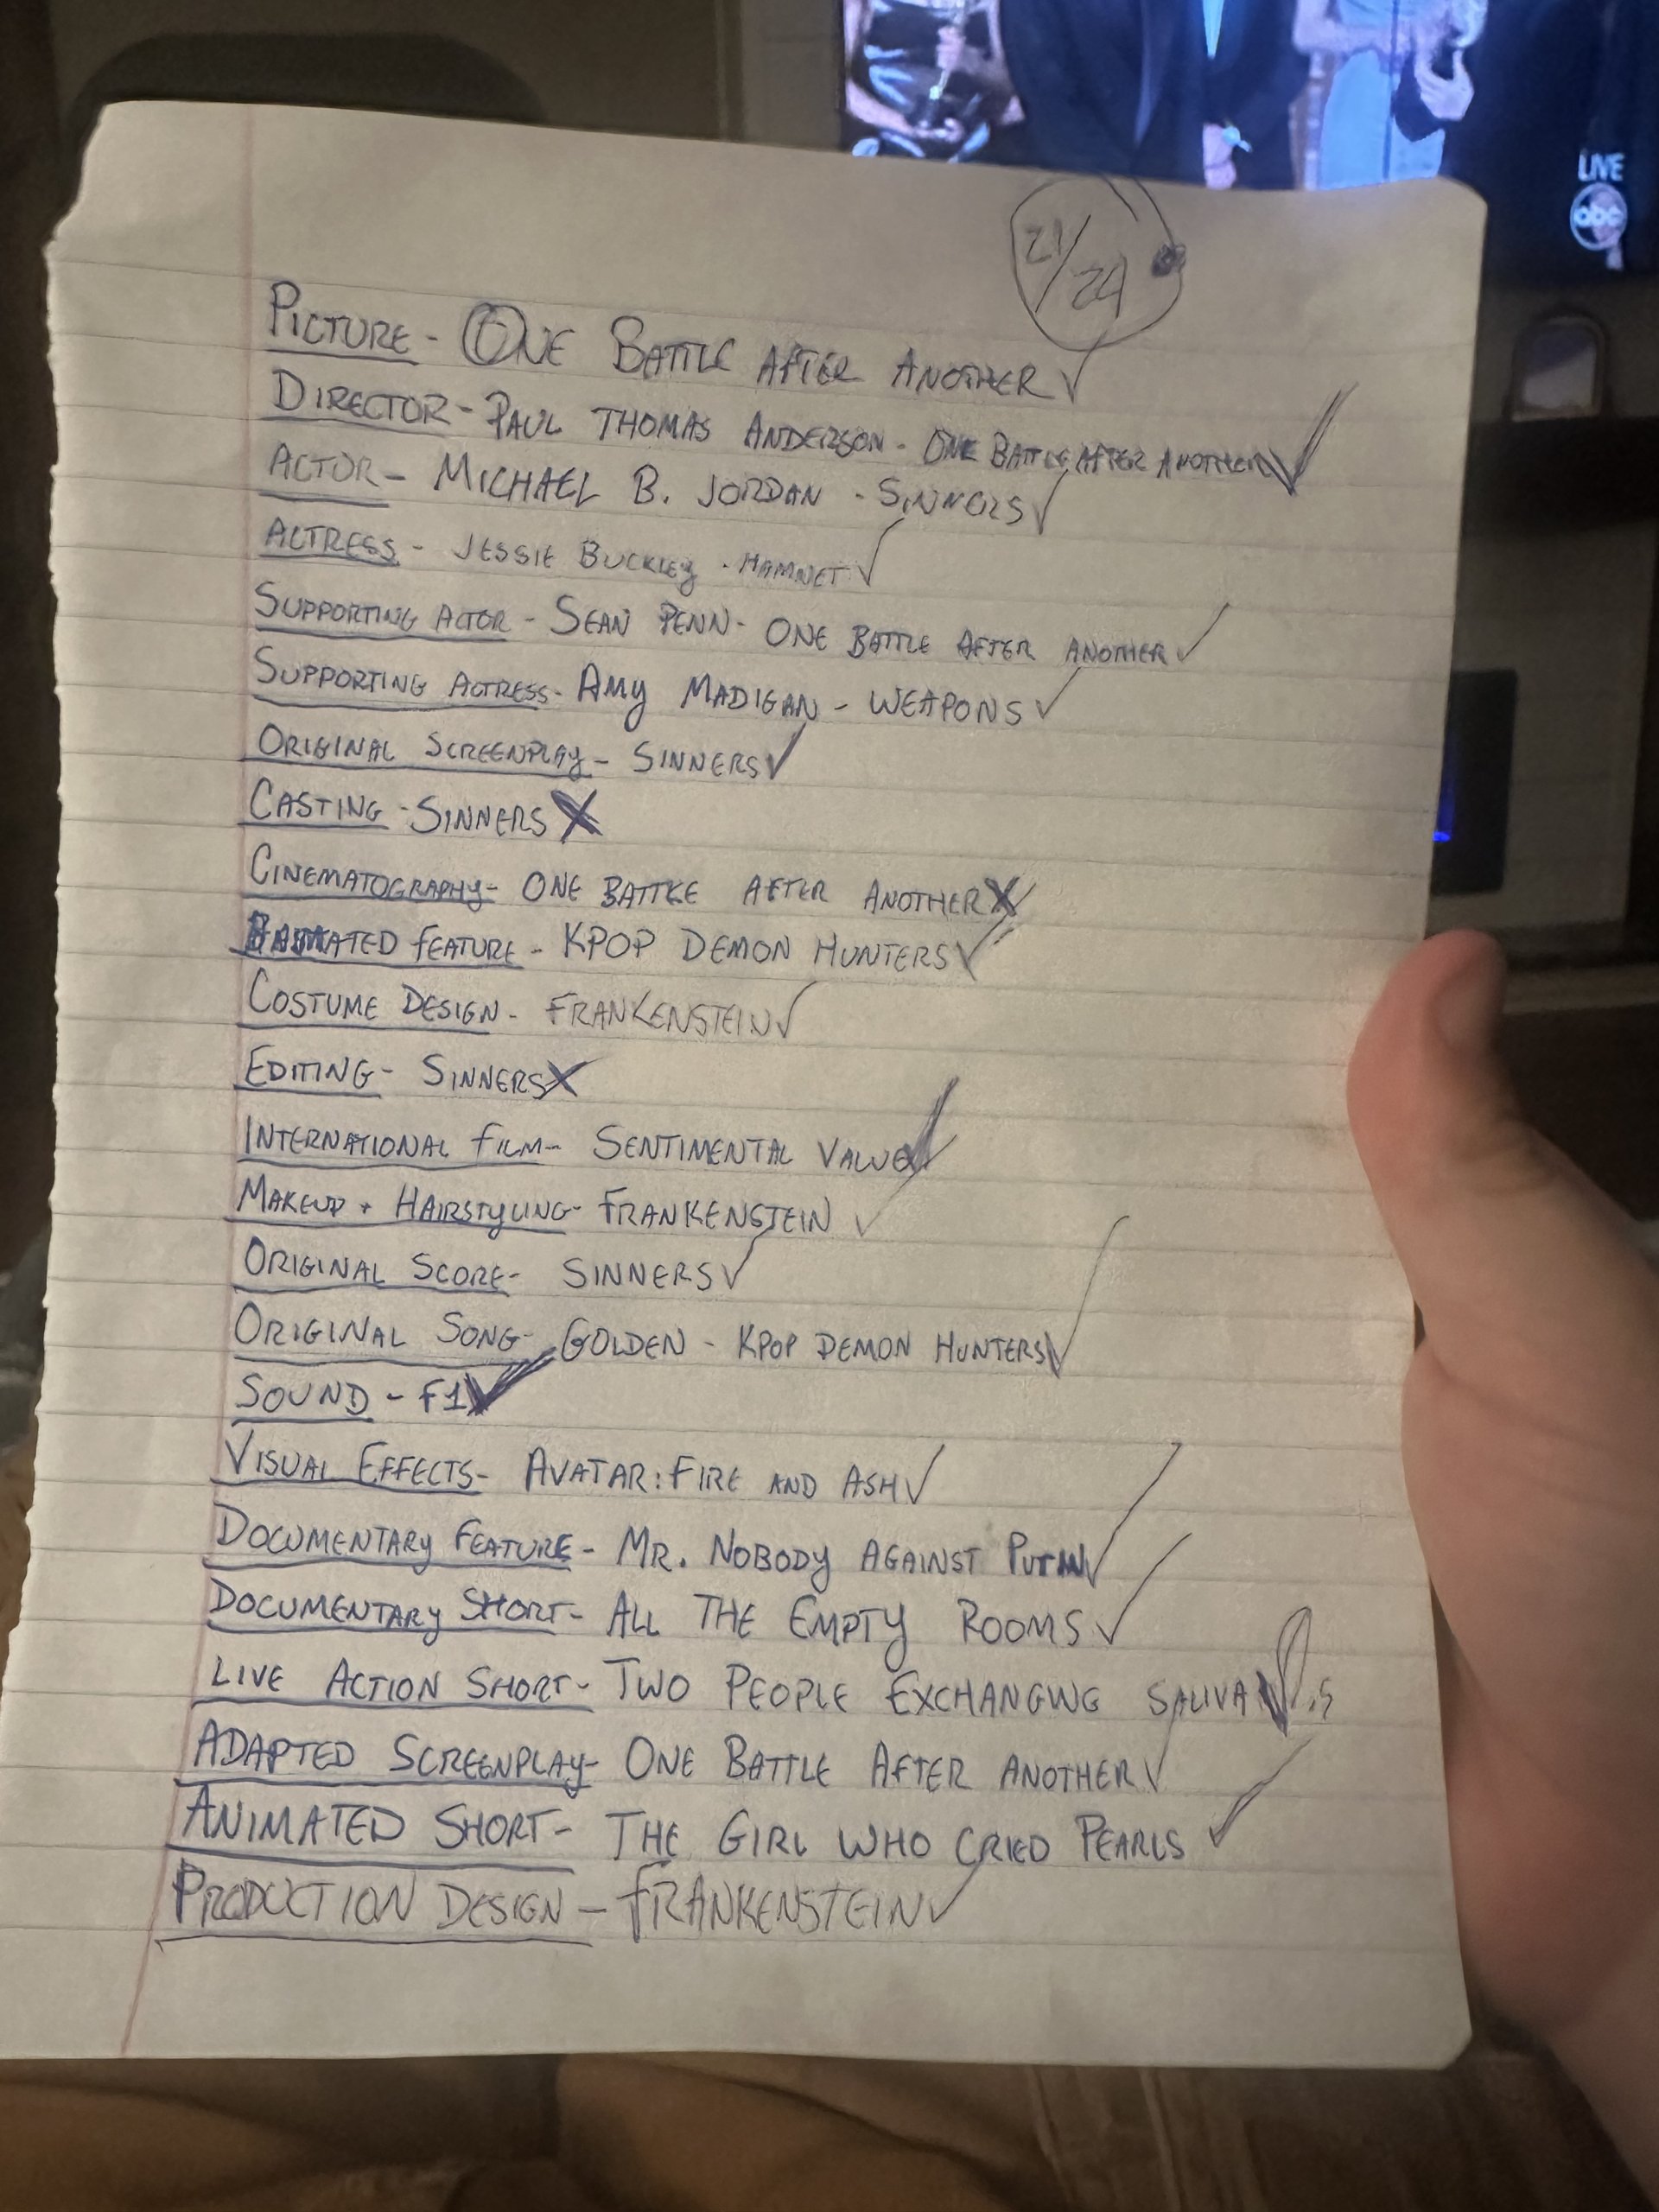 LIVE
abc
21/24
PICTURE - ONE BATTLE AFTER ANOTHER ✓
DIRECTOR - PAUL THOMAS ANDERSON - ONE BATTLE AFTER ANOTHER ✓
ACTOR - MICHAEL B. JORDAN - SINNERS ✓
ACTRESS - JESSIE BUCKLEY - HAMNET ✓
SUPPORTING ACTOR - SEAN PENN - ONE BATTLE AFTER ANOTHER ✓
SUPPORTING ACTRESS - AMY MADIGAN - WEAPONS ✓
ORIGINAL SCREENPLAY - SINNERS ✓
CASTING - SINNERS X
CINEMATOGRAPHY - ONE BATTLE AFTER ANOTHER X
ANIMATED FEATURE - KPOP DEMON HUNTERS ✓
COSTUME DESIGN - FRANKENSTEIN ✓
EDITING - SINNERS X
INTERNATIONAL FILM - SENTIMENTAL VALUE ✓
MAKEUP + HAIRSTYLING - FRANKENSTEIN ✓
ORIGINAL SCORE - SINNERS ✓
ORIGINAL SONG - GOLDEN - KPOP DEMON HUNTERS ✓
SOUND - F1 ✓
VISUAL EFFECTS - AVATAR: FIRE AND ASH ✓
DOCUMENTARY FEATURE - MR. NOBODY AGAINST PUTIN ✓
DOCUMENTARY SHORT - ALL THE EMPTY ROOMS ✓
LIVE ACTION SHORT - TWO PEOPLE EXCHANGING SALIVA ✓ .5
ADAPTED SCREENPLAY - ONE BATTLE AFTER ANOTHER ✓
ANIMATED SHORT - THE GIRL WHO CRIED PEARLS ✓
PRODUCTION DESIGN - FRANKENSTEIN ✓